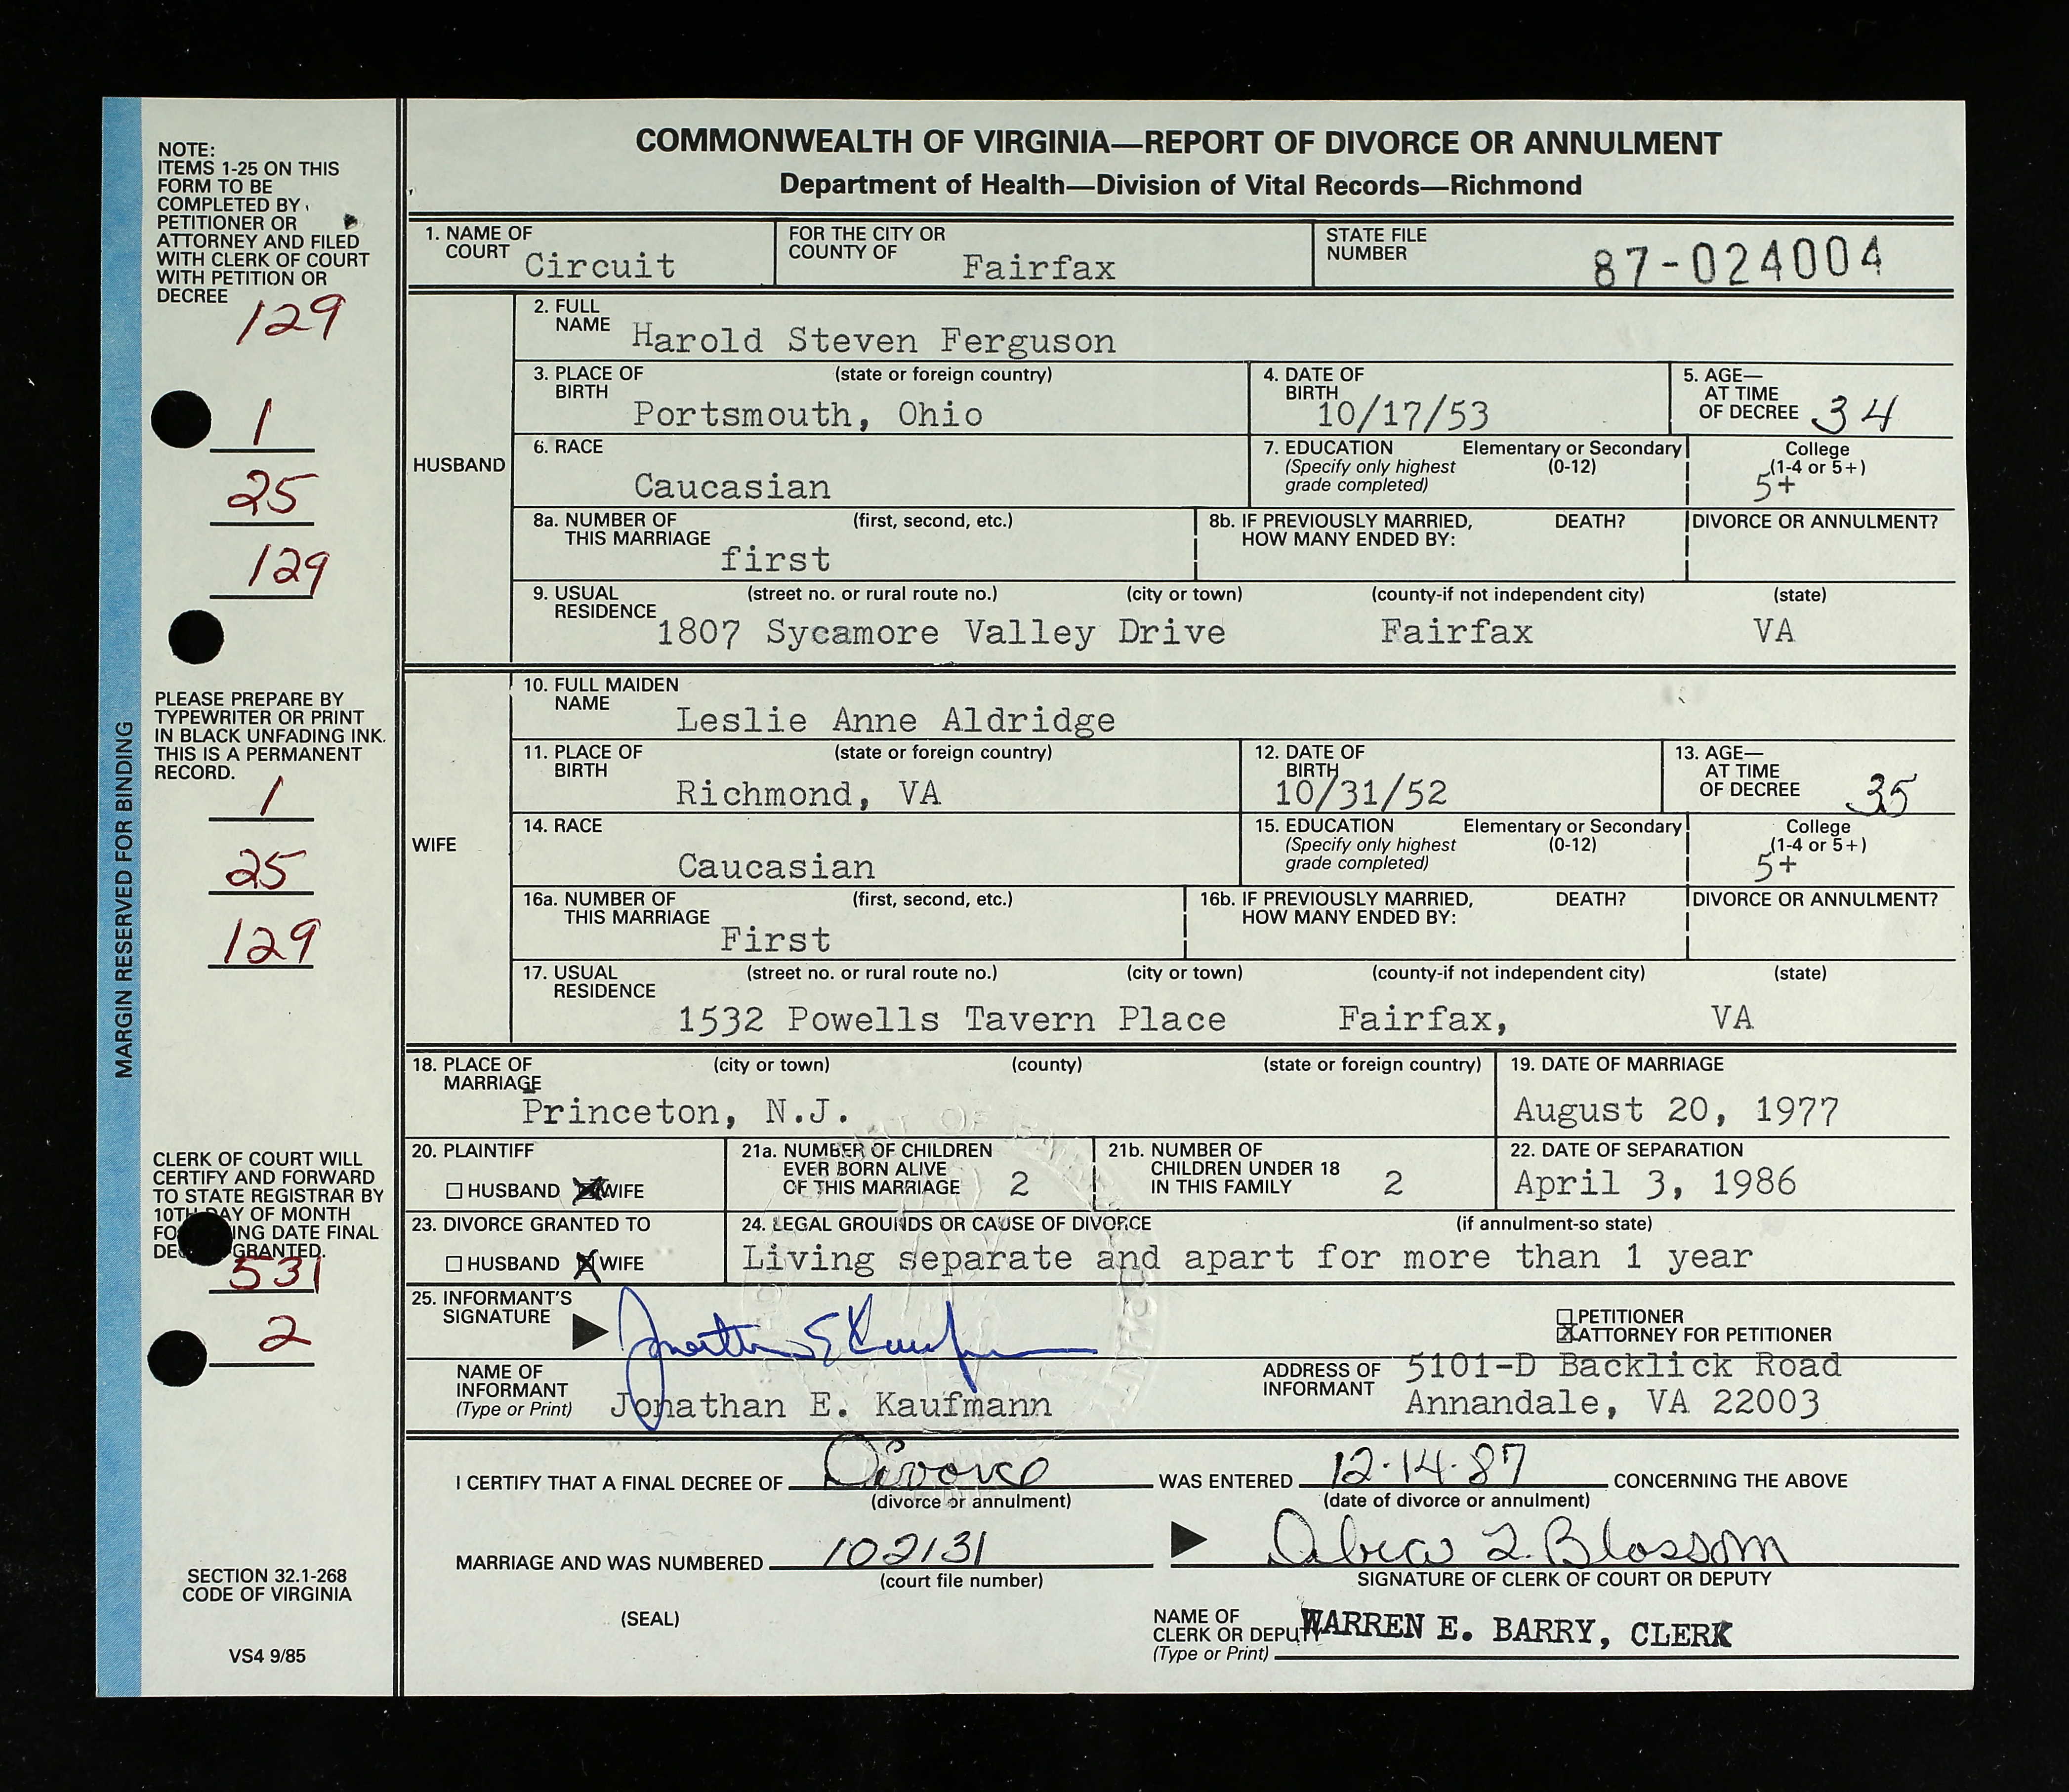 COMMONWEALTH OF VIRGINIA—REPORT OF DIVORCE OR ANNULMENT
Department of Health—Division of Vital Records—Richmond
NOTE:
ITEMS 1-25 ON THIS
FORM TO BE
COMPLETED BY
PETITIONER OR
ATTORNEY AND FILED
WITH CLERK OF COURT
WITH PETITION OR
DECREE
129
1
25
129
PLEASE PREPARE BY
TYPEWRITER OR PRINT
IN BLACK UNFADING INK.
THIS IS A PERMANENT
RECORD.
1
25
129
CLERK OF COURT WILL
CERTIFY AND FORWARD
TO STATE REGISTRAR BY
10TH DAY OF MONTH
ING DATE FINAL
GRANTED.
531
2
SECTION 32.1-268
CODE OF VIRGINIA
VS4 9/85
MARGIN RESERVED FOR BINDING
1. NAME OF COURT Circuit
FOR THE CITY OR COUNTY OF Fairfax
STATE FILE NUMBER 87-024004
HUSBAND
2. FULL NAME Harold Steven Ferguson
3. PLACE OF BIRTH (state or foreign country) Portsmouth, Ohio
4. DATE OF BIRTH 10/17/53
5. AGE— AT TIME OF DECREE 34
6. RACE Caucasian
7. EDUCATION (Specify only highest grade completed) Elementary or Secondary (0-12) College (1-4 or 5+) 5+
8a. NUMBER OF THIS MARRIAGE (first, second, etc.) first
8b. IF PREVIOUSLY MARRIED, HOW MANY ENDED BY: DEATH? DIVORCE OR ANNULMENT?
9. USUAL RESIDENCE (street no. or rural route no.) (city or town) (county-if not independent city) (state)
1807 Sycamore Valley Drive Fairfax VA
WIFE
10. FULL MAIDEN NAME Leslie Anne Aldridge
11. PLACE OF BIRTH (state or foreign country) Richmond, VA
12. DATE OF BIRTH 10/31/52
13. AGE— AT TIME OF DECREE 35
14. RACE Caucasian
15. EDUCATION (Specify only highest grade completed) Elementary or Secondary (0-12) College (1-4 or 5+) 5+
16a. NUMBER OF THIS MARRIAGE (first, second, etc.) First
16b. IF PREVIOUSLY MARRIED, HOW MANY ENDED BY: DEATH? DIVORCE OR ANNULMENT?
17. USUAL RESIDENCE (street no. or rural route no.) (city or town) (county-if not independent city) (state)
1532 Powells Tavern Place Fairfax, VA
18. PLACE OF MARRIAGE (city or town) (county) (state or foreign country)
Princeton, N.J.
19. DATE OF MARRIAGE
August 20, 1977
20. PLAINTIFF
HUSBAND WIFE
21a. NUMBER OF CHILDREN EVER BORN ALIVE OF THIS MARRIAGE 2
21b. NUMBER OF CHILDREN UNDER 18 IN THIS FAMILY 2
22. DATE OF SEPARATION
April 3, 1986
23. DIVORCE GRANTED TO
HUSBAND WIFE
24. LEGAL GROUNDS OR CAUSE OF DIVORCE (if annulment-so state)
Living separate and apart for more than 1 year
25. INFORMANT'S SIGNATURE
PETITIONER
ATTORNEY FOR PETITIONER
NAME OF INFORMANT (Type or Print) Jonathan E. Kaufmann
ADDRESS OF INFORMANT 5101-D Backlick Road
Annandale, VA 22003
I CERTIFY THAT A FINAL DECREE OF Divorce WAS ENTERED 12-14-87 CONCERNING THE ABOVE
(divorce or annulment) (date of divorce or annulment)
MARRIAGE AND WAS NUMBERED 102131
(court file number)
L. Blossom
SIGNATURE OF CLERK OF COURT OR DEPUTY
(SEAL)
NAME OF CLERK OR DEPUTY (Type or Print) WARREN E. BARRY, CLERK